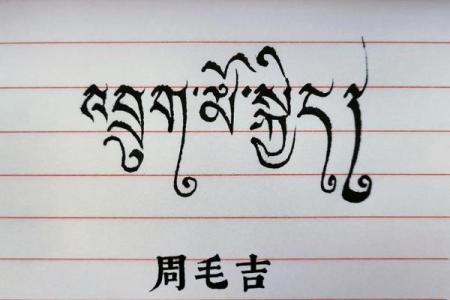 འབྲུག་མོ་སྐྱིད།
周毛吉